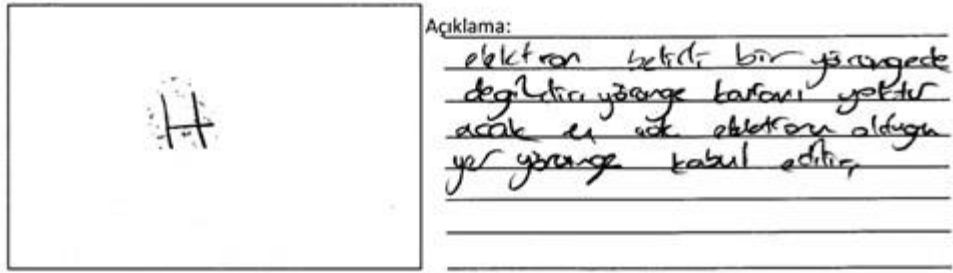 H
Açıklama:
elektron belirli bir yörüngede
değildir, yörünge kavramı yoktur
acak en çok elektronu olduğu
yer yörünge kabul edilir,